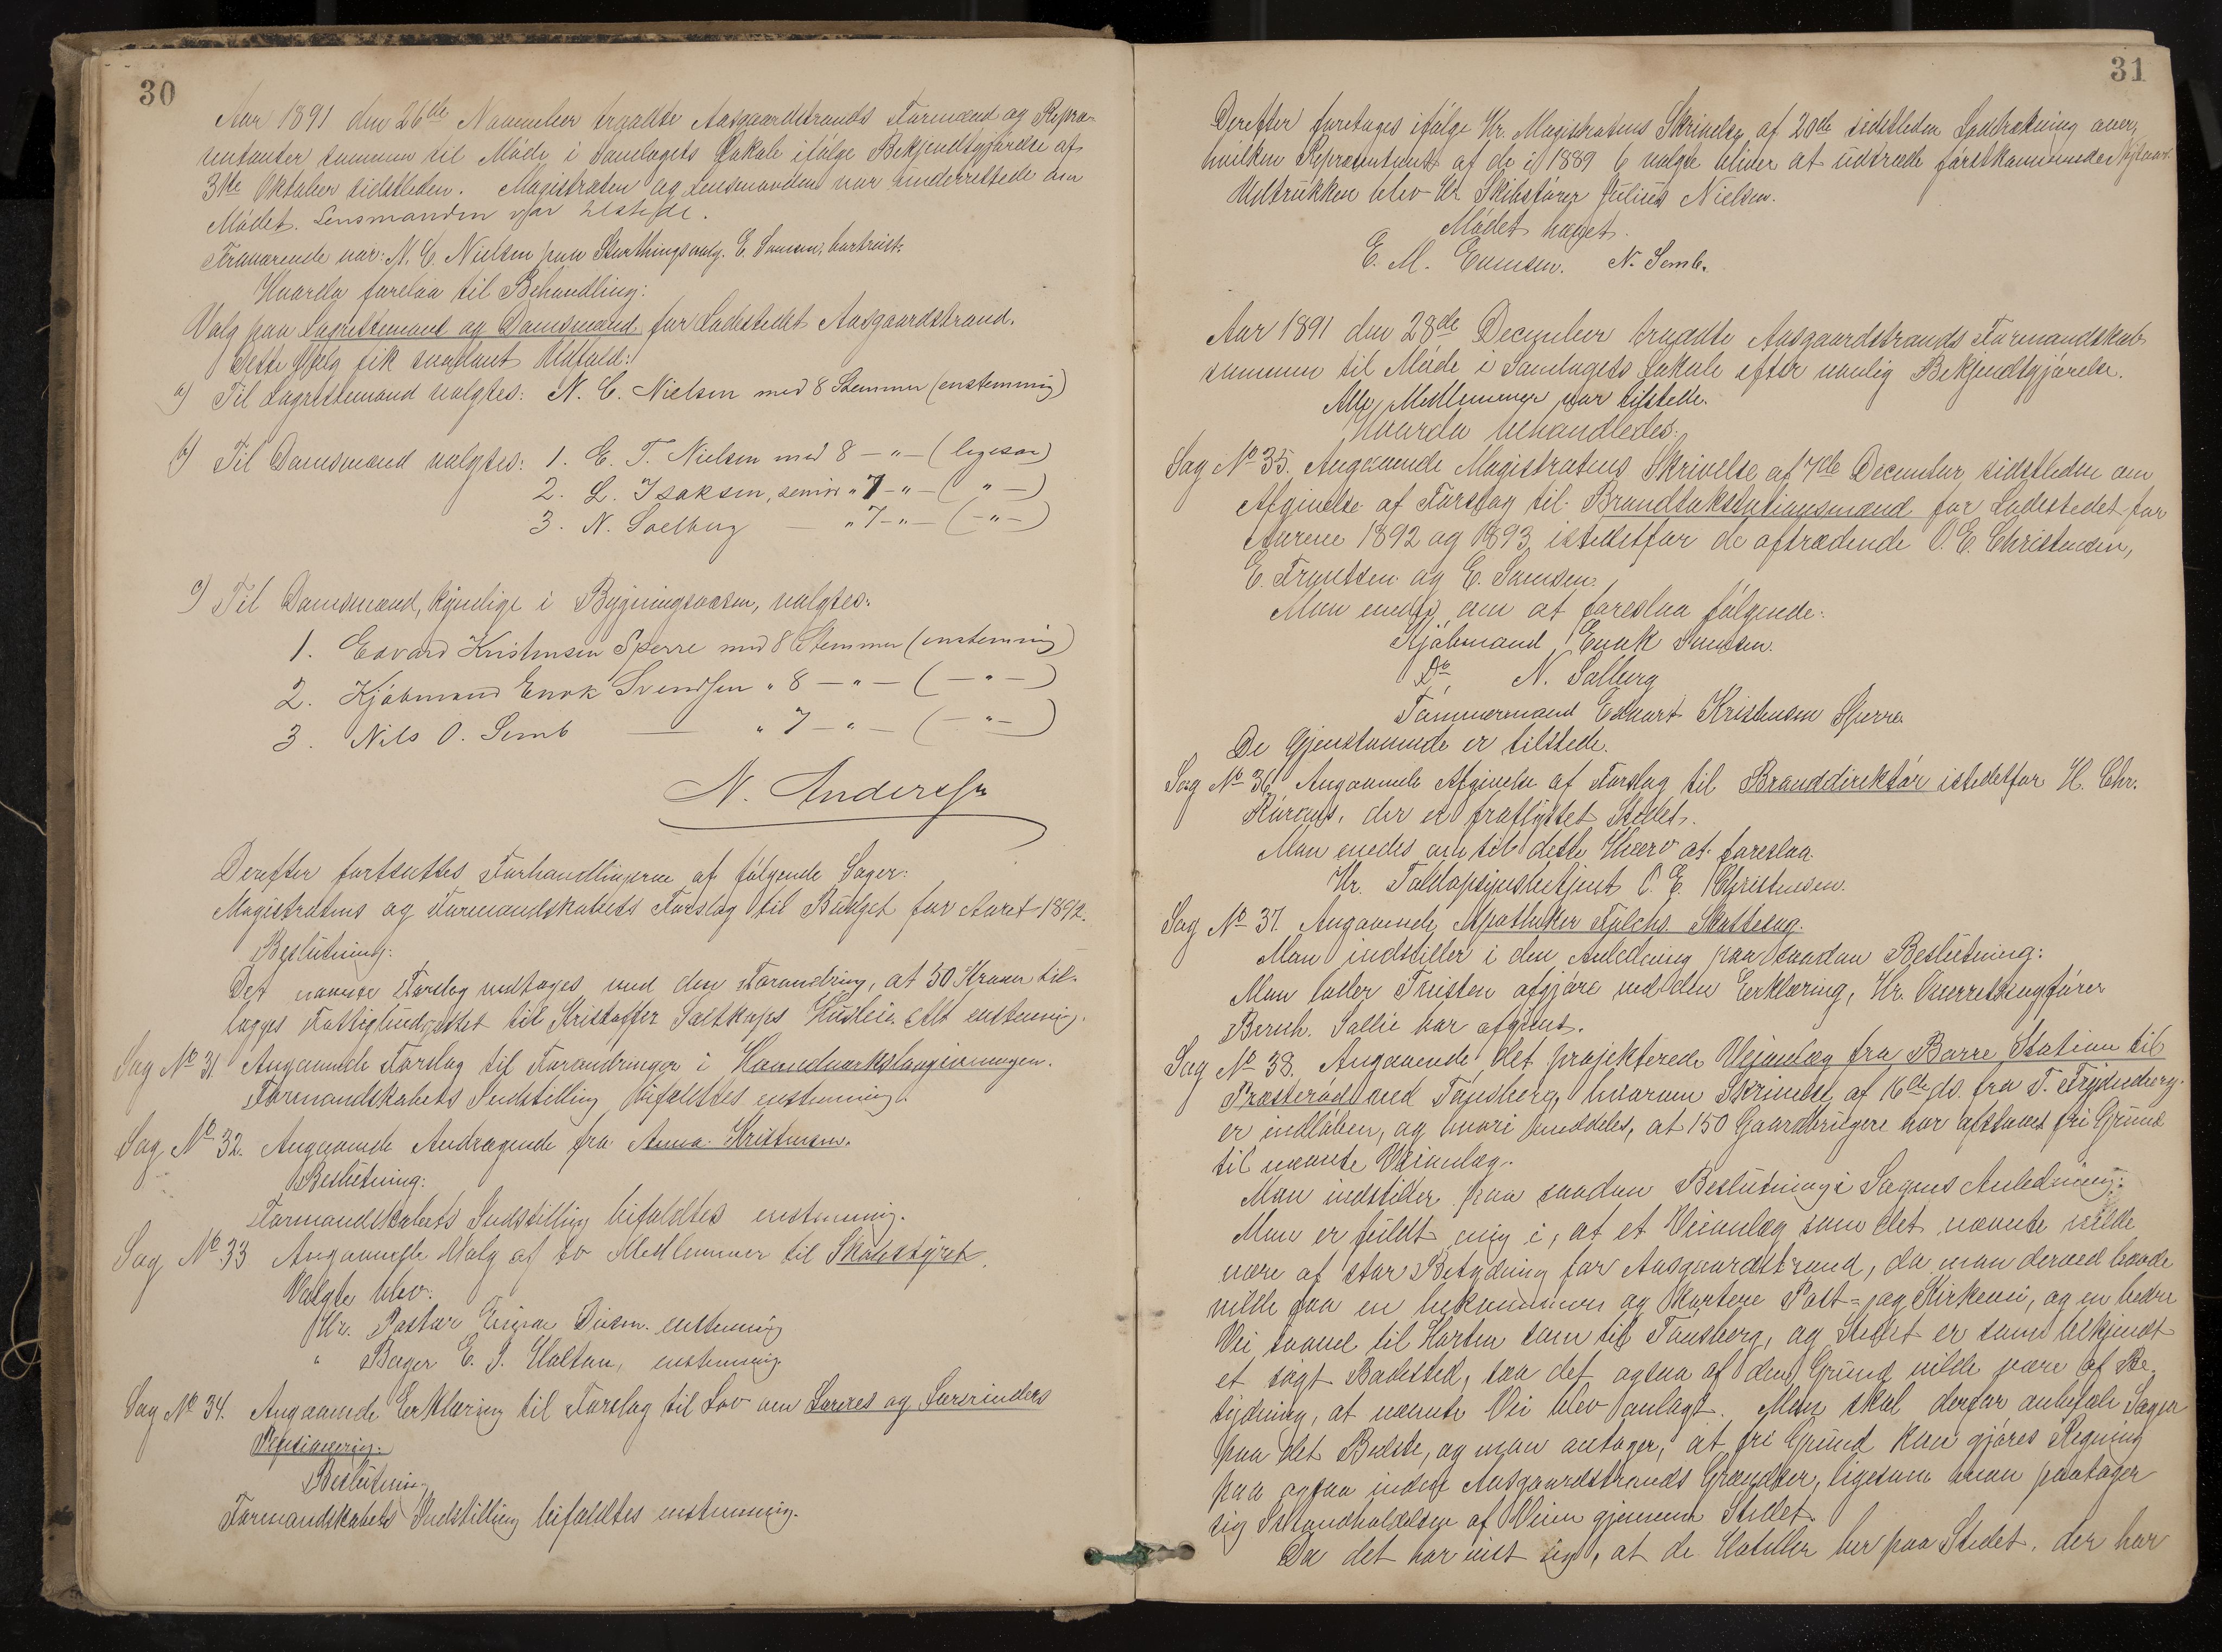 30
Aar 1891 den 26de November traadte Aasgaardstrands Formænd og Repræ-
sentanter sammen til Møde i Samlagets Lokale ifølge Bekjendtgjørelse af
31te Oktober sidstleden. Magistraten og Lensmanden var underrettede om
Mødet. Lensmanden var tilstede.
Fraværende var: N. C. Nielsen paa Storthingsvalg. E. bortreist.
Hvorda forelaa til Behandling:
Valg paa Lagrettemænd og Domsmænd for Ladestedet Aasgaardstrand.
Dette Valg fik saadant Udfald:
a) Til Lagrettemand valgtes: N. C. Nielsen med 8 Stemmer (enstemmig)
b) Til Domsmænd valgtes: 1. E. T. Nielsen med 8 — " — (ligesaa)
2. L. Isaksen, senior " 7 — " — ( " — )
3. N. Solberg — " 7 — " — ( — " — )
c) Til Domsmænd, kyndige i Bygningsvæsen, valgtes:
1. Edvard Kristensen Sperre med 8 Stemmer (enstemmig)
2. Kjøbmand Enok Svendsen " 8 — " — ( — " — )
3. Nils O. Semb — " 7 — " — ( — " — )
N. Anderssen
Derefter fortsattes Forhandlingerne af følgende Sager:
Magistratens og Formandskabets Forslag til Budget for Aaret 1892.
Beslutning:
Det nævnte Forslag vedtages med den Forandring, at 50 Kroner til-
lægges Fattigbudgettet til Kristoffer Husleie. Alt enstemmig.
Sag No 31 Angaaende Forslag til Forandringer i Haandværkslovgivningen.
Formandskabets Indstilling bifaldtes enstemmig.
Sag No 32. Angaaende Andragende fra Anna Kristensen.
Beslutning:
Formandskabets Indstilling bifaldtes enstemmig.
Sag No 33 Angaaende Valg af to Medlemmer til Skolestyret.
Valgte blev:
Hr. Pastor enstemmig
" Bager E. J. Holtan, enstemmig
Sag No 34. Angaaende Erklæring til Forslag til Lov om Læreres og Lærerinders
Pensionering.
Beslutning
Formandskabets Indstilling bifaldtes enstemmig.
31
Derefter foretages ifølge Hr. Magistratens Skrivelse af 20de sidstleden Lodtrækning over,
hvilken Repræsentant af de i 1889 6 valgte bliver at udtræde førstkommende Nytaar.
Udtrukken blev Hr. Skibsfører Julius Nielsen.
Mødet hævet.
E. M. Evensen. N. Semb.
Aar 1891 den 28de December traadte Aasgaardstrands Formandskab
sammen til Møde i Samlagets Lokale efter vanlig Bekjendtgjørelse.
Alle Medlemmer var tilstede.
Hvorda behandledes:
Sag No 35. Angaaende Magistratens Skrivelse af 7de December sidstleden om
Afgivelse af Forslag til Brandtakstationsmænd for Ladestedet for
Aarene 1892 og 1893 istedetfor de aftrædende O. E. Christensen,
E. Frantsen og E. Samsen.
Man enedes om at foreslaa følgende:
Kjøbmand Enok Svendsen.
Do N. Solberg
Tømmermand Edvart Kristensen Sperre.
De Gjenstaaende er tilstede.
Sag No 36. Angaaende Afgivelse af Forslag til Branddirektør istedetfor H. Chr.
der er fraflyttet Stedet.
Man enedes om til dette Hverv at foreslaa
Hr. Toldopsynsbetjent O. E. Christensen.
Sag No 37. Angaaende Apotheker Falchs Skattesag.
Man indstiller i den Anledning paa saadan Beslutning:
Man lader Tvisten afgjøre ved den Erklæring, Hr. Overretssagfører
Bernh. har afgivet.
Sag No 38. Angaaende det projekterede Vejanlæg fra Barre Station til
Presterød ved Tønsberg, hvorom Skrivelse af 16de ds. fra T.
er indløben, og hvori meddeles, at 150 Gaardbrugere har afstaaet fri Grund
til nævnte Veianlæg.
Man indstiller paa saadan Beslutning i Sagens Anledning:
Man er fuldt enig i, at et Veianlæg som det nævnte vilde
være af stor Betydning for Aasgaardstrand, da man derved baade
vilde faa en bekvemmere og kortere Post- og Kirkevei, og en bedre
Vei saavel til Horten som til Tønsberg, og Stedet er som bekjendt
et søgt Badested, saa det ogsaa af den Grund vilde være af Be-
tydning, at nævnte Vei blev anlagt. Man skal derfor anbefale Sagen
paa det Bedste, og man antager, at fri Grund kan gjøres Regning
paa ogsaa inden Aasgaardstrands Grændser, ligesom man paatager
sig Istandholdelsen af Veien gjennem Stedet.
Da det har vist sig, at de Hoteller her paa Stedet, der har